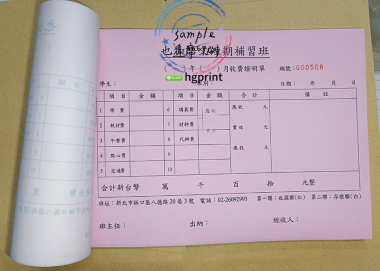 sample
期補習班
hgprint
年（　）月收費證明單
編號:000508
學生：
日期：　年　月　日
項目　金額　項目　金額　合計　備註
1　學費　6　講義費　應收　元
2　教材費　7　材料費　實收　元
3　午餐費　8　代辦費
4　點心費　9　元
5　交通費　10
合計新台幣　萬　千　百　拾　元整
班址：新北市林口區八德路20巷3號　電話：02-26092993　第一聯：收據聯(紅)　第二聯：存根聯(白)
班主任：　出納：　經收人：